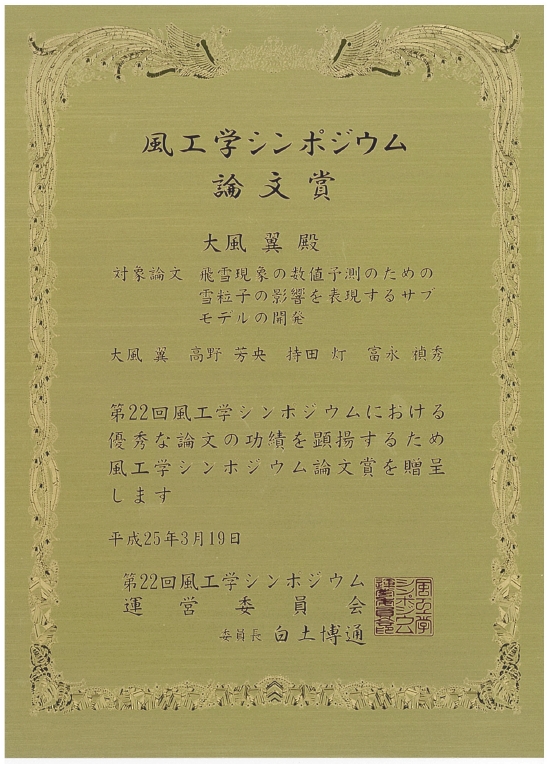 風工学シンポジウム
論文賞
大風 翼 殿
対象論文 飛雪現象の数値予測のための
雪粒子の影響を表現するサブ
モデルの開発
大風 翼 高野 芳央 持田 灯 富永 禎秀
第22回風工学シンポジウムにおける
優秀な論文の功績を顕揚するため
風工学シンポジウム論文賞を贈呈
します
平成25年3月19日
第22回風工学シンポジウム
運営委員会
委員長 白土博通
風工学
シンポジウム
運営委員会印